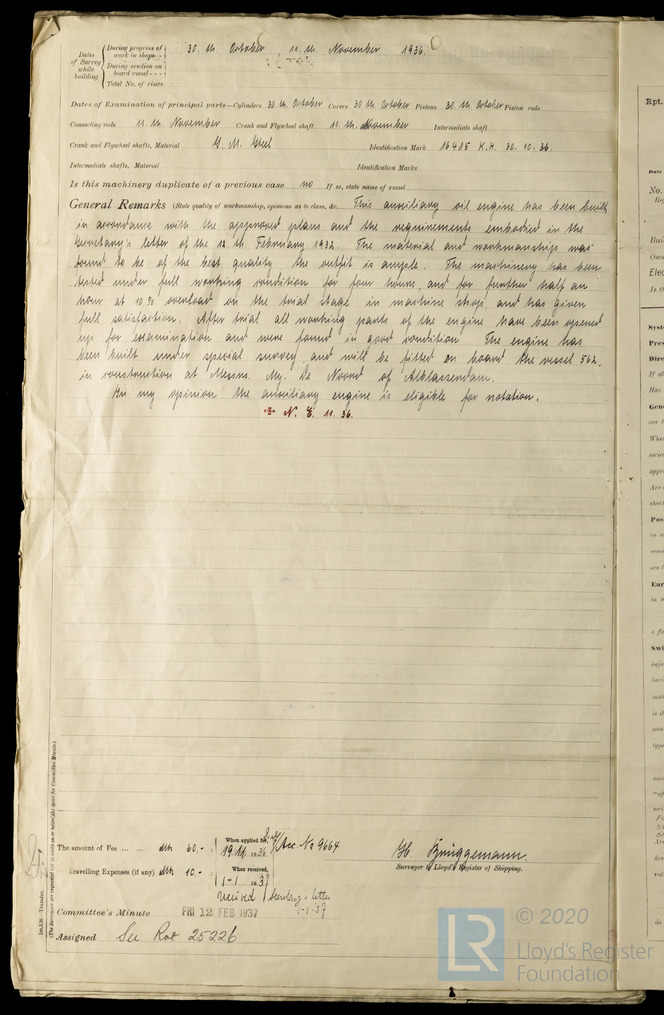 Dates of Survey while building
During progress of work in shops - - 30. th. October 11. th. November 1936.
During erection on board vessel - - -
Total No. of visits
Dates of Examination of principal parts—Cylinders 30. th. October Covers 30 th. October Pistons 30. th. October Piston rods
Connecting rods 11. th. November Crank and Flywheel shaft 11. th. November Intermediate shaft
Crank and Flywheel shafts, Material S. M. Steel Identification Mark 16485 K.H. 30. 10. 36.
Intermediate shafts, Material Identification Marks
Is this machinery duplicate of a previous case no If so, state name of vessel
General Remarks (State quality of workmanship, opinions as to class, &c. This auxiliary oil engine has been built
in accordance with the approved plans and the requirements embodied in the
Secretary's letter of the 12 th. February 1932. The material and workmanship was
found to be of the best quality the outfit is ample. The machinery has been
tested under full working condition for four hours, and for further half an
hour at 10% overload on the trial stage in machine shop, and has given
full satisfaction. After trial all working parts of the engine have been opened
up for examination and were found in good condition. The engine has
been built under special survey, and will be fitted on board the vessel 562,
in construction at Messrs. My. De Noord of Alblasserdam.
In my opinion the auxiliary engine is eligible for notation.
N. E. 11. 36.
The amount of Fee ... ... 60,- : When applied for, 19 36 Acc. No 9664
Travelling Expenses (if any) 10.- : When received, 1-1- 1937
received Secretary's letter 1-1-37
H. Brüggemann.
Surveyor to Lloyd's Register of Shipping.
Committee's Minute FRI 12 FEB 1937
Assigned See Rot 25226
(The Surveyors are requested not to write on or below the space for Committee's Minute.)
© 2020
LR
Lloyd's Register
Foundation
Rpt.